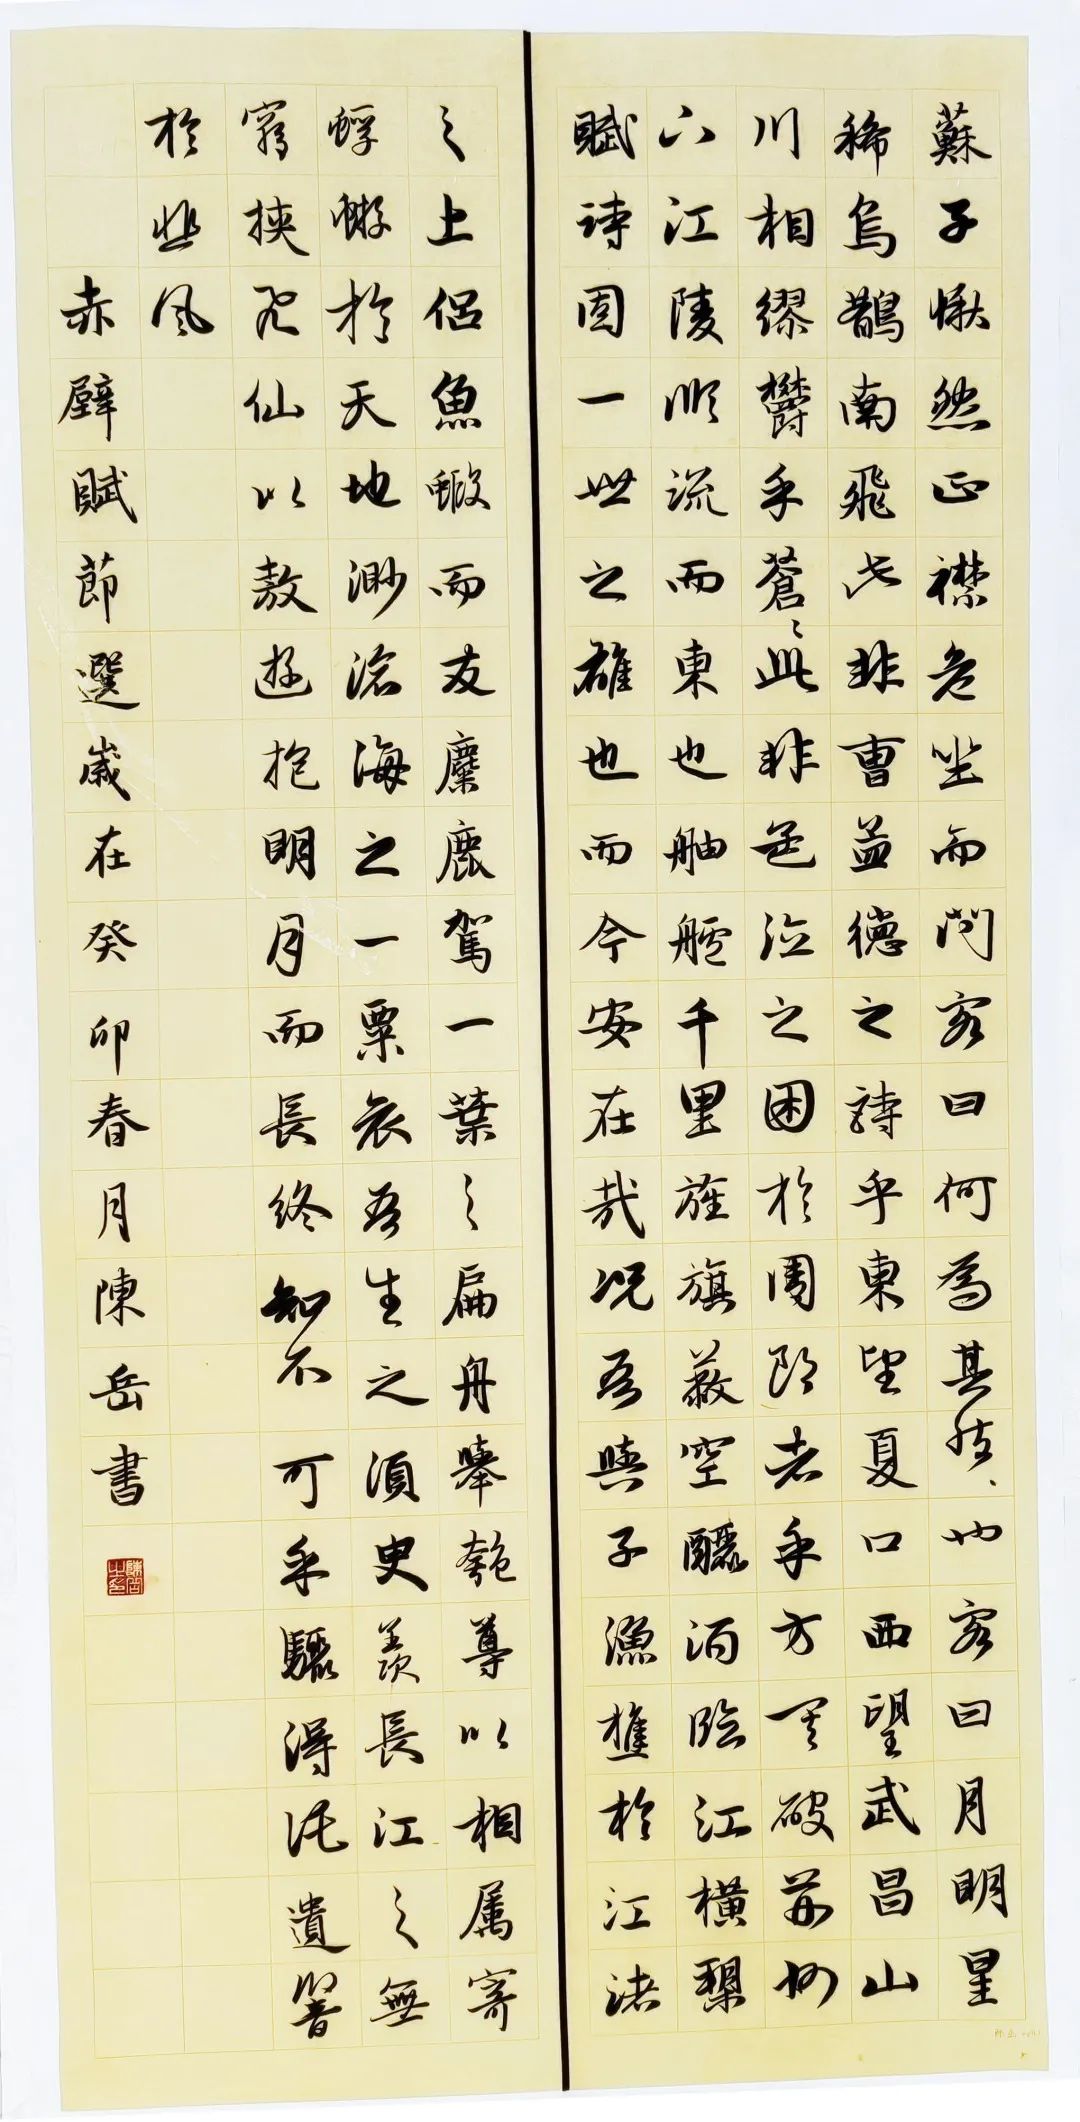 蘇子愀然正襟危坐而問客曰何為其然也客曰月明星
稀烏鵲南飛此非曹孟德之詩乎東望夏口西望武昌山
川相繆鬱乎蒼〻此非孟德之困於周郎者乎方其破荊州
下江陵順流而東也舳艫千里旌旗蔽空釃酒臨江橫槊
賦詩固一世之雄也而今安在哉況吾與子漁樵於江渚
之上侶魚蝦而友麋鹿駕一葉之扁舟舉匏尊以相属寄
蜉蝣於天地渺滄海之一粟哀吾生之須臾羨長江之無
窮挾飛仙以敖遊抱明月而長終知不可乎驟得託遺響
於悲風
赤壁賦節選歲在癸卯春月陳岳書